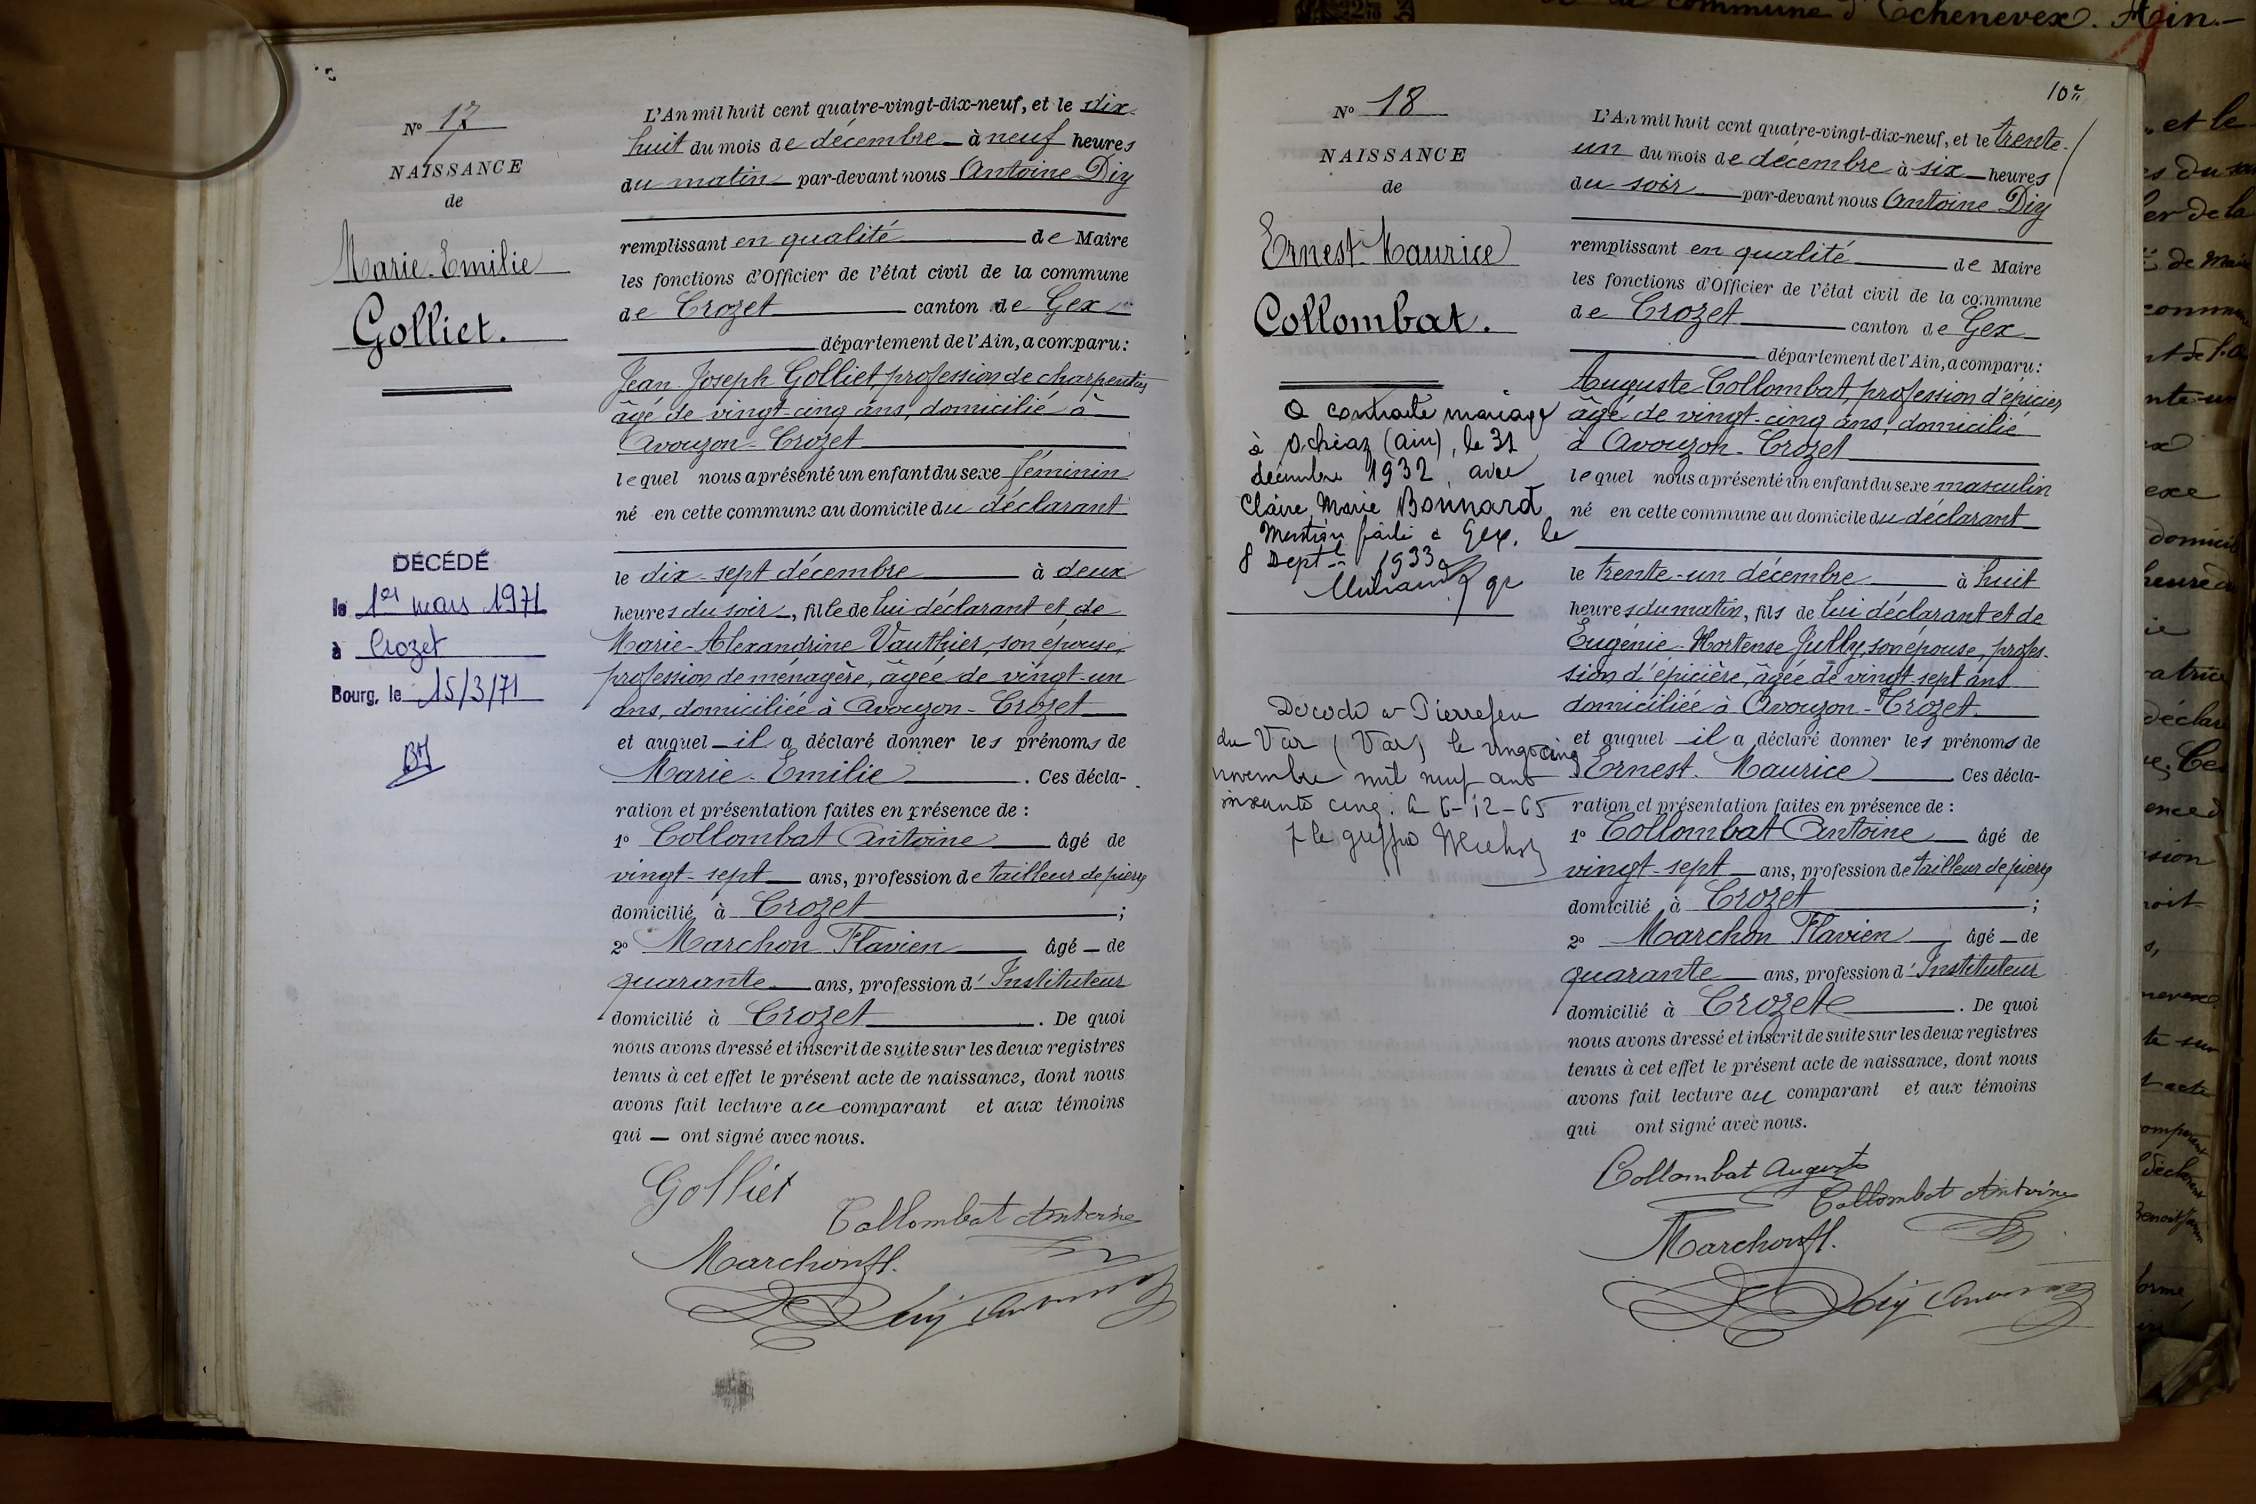 Nº 17
NAISSANCE
de
Marie-Emilie
Golliet.
DÉCÉDÉ
le 1er mars 1971
à Crozet
Bourg, le 15/3/71
L'An mil huit cent quatre-vingt-dix-neuf, et le dix-
huit du mois de décembre à neuf heures
du matin par-devant nous Antoine Diy
remplissant en qualité de Maire
les fonctions d'Officier de l'état civil de la commune
de Crozet canton de Gex
département de l'Ain, a comparu:
Jean-Joseph Golliet, profession de charpentier
âgé de vingt-cinq ans, domicilié à
Avouzon-Crozet
lequel nous a présenté un enfant du sexe féminin
né en cette commune au domicile du déclarant
le dix-sept décembre à deux
heures du soir, fille de lui déclarant et de
Marie-Alexandrine Vauthier, son épouse,
profession de ménagère, âgée de vingt-un
ans, domiciliée à Avouzon-Crozet
et auquel il a déclaré donner les prénoms de
Marie-Emilie. Ces décla-
ration et présentation faites en présence de :
1º Collombat Antoine âgé de
vingt-sept ans, profession de tailleur de pierre
domicilié à Crozet ;
2º Marchon Flavien âgé de
quarante ans, profession d'Instituteur
domicilié à Crozet. De quoi
nous avons dressé et inscrit de suite sur les deux registres
tenus à cet effet le présent acte de naissance, dont nous
avons fait lecture au comparant et aux témoins
qui ont signé avec nous.
Golliet
Collombat Antoine
Marchon fl.
Diy Antoine
10
Nº 18
NAISSANCE
de
Ernest-Maurice
Collombat.
a contracté mariage
à Ochiaz (Ain), le 31
décembre 1932, avec
Claire Marie Bonnard
Mention faite à Gex, le
8 Sept 1933
Décédé à Pierrefeu
du Var (Var) le vingt cinq
novembre mil neuf cent
soixante cinq. Le 6-12-65
L'An mil huit cent quatre-vingt-dix-neuf, et le trente-
un du mois de décembre à six heures
du soir par-devant nous Antoine Diy
remplissant en qualité de Maire
les fonctions d'Officier de l'état civil de la commune
de Crozet canton de Gex
département de l'Ain, a comparu:
Auguste Collombat, profession d'épicier
âgé de vingt-cinq ans, domicilié
à Avouzon-Crozet
lequel nous a présenté un enfant du sexe masculin
né en cette commune au domicile du déclarant
le trente-un décembre à huit
heures du matin, fils de lui déclarant et de
Eugénie-Hortense Jully, son épouse, profes-
sion d'épicière, âgée de vingt-sept ans
domiciliée à Avouzon-Crozet.
et auquel il a déclaré donner les prénoms de
Ernest-Maurice Ces décla-
ration et présentation faites en présence de :
1º Collombat Antoine âgé de
vingt-sept ans, profession de tailleur de pierre
domicilié à Crozet ;
2º Marchon Flavien âgé de
quarante ans, profession d'Instituteur
domicilié à Crozet. De quoi
nous avons dressé et inscrit de suite sur les deux registres
tenus à cet effet le présent acte de naissance, dont nous
avons fait lecture au comparant et aux témoins
qui ont signé avec nous.
Collombat Auguste
Collombat Antoine
Marchon fl.
Diy Antoine
commune d'Echenevex. Ain.